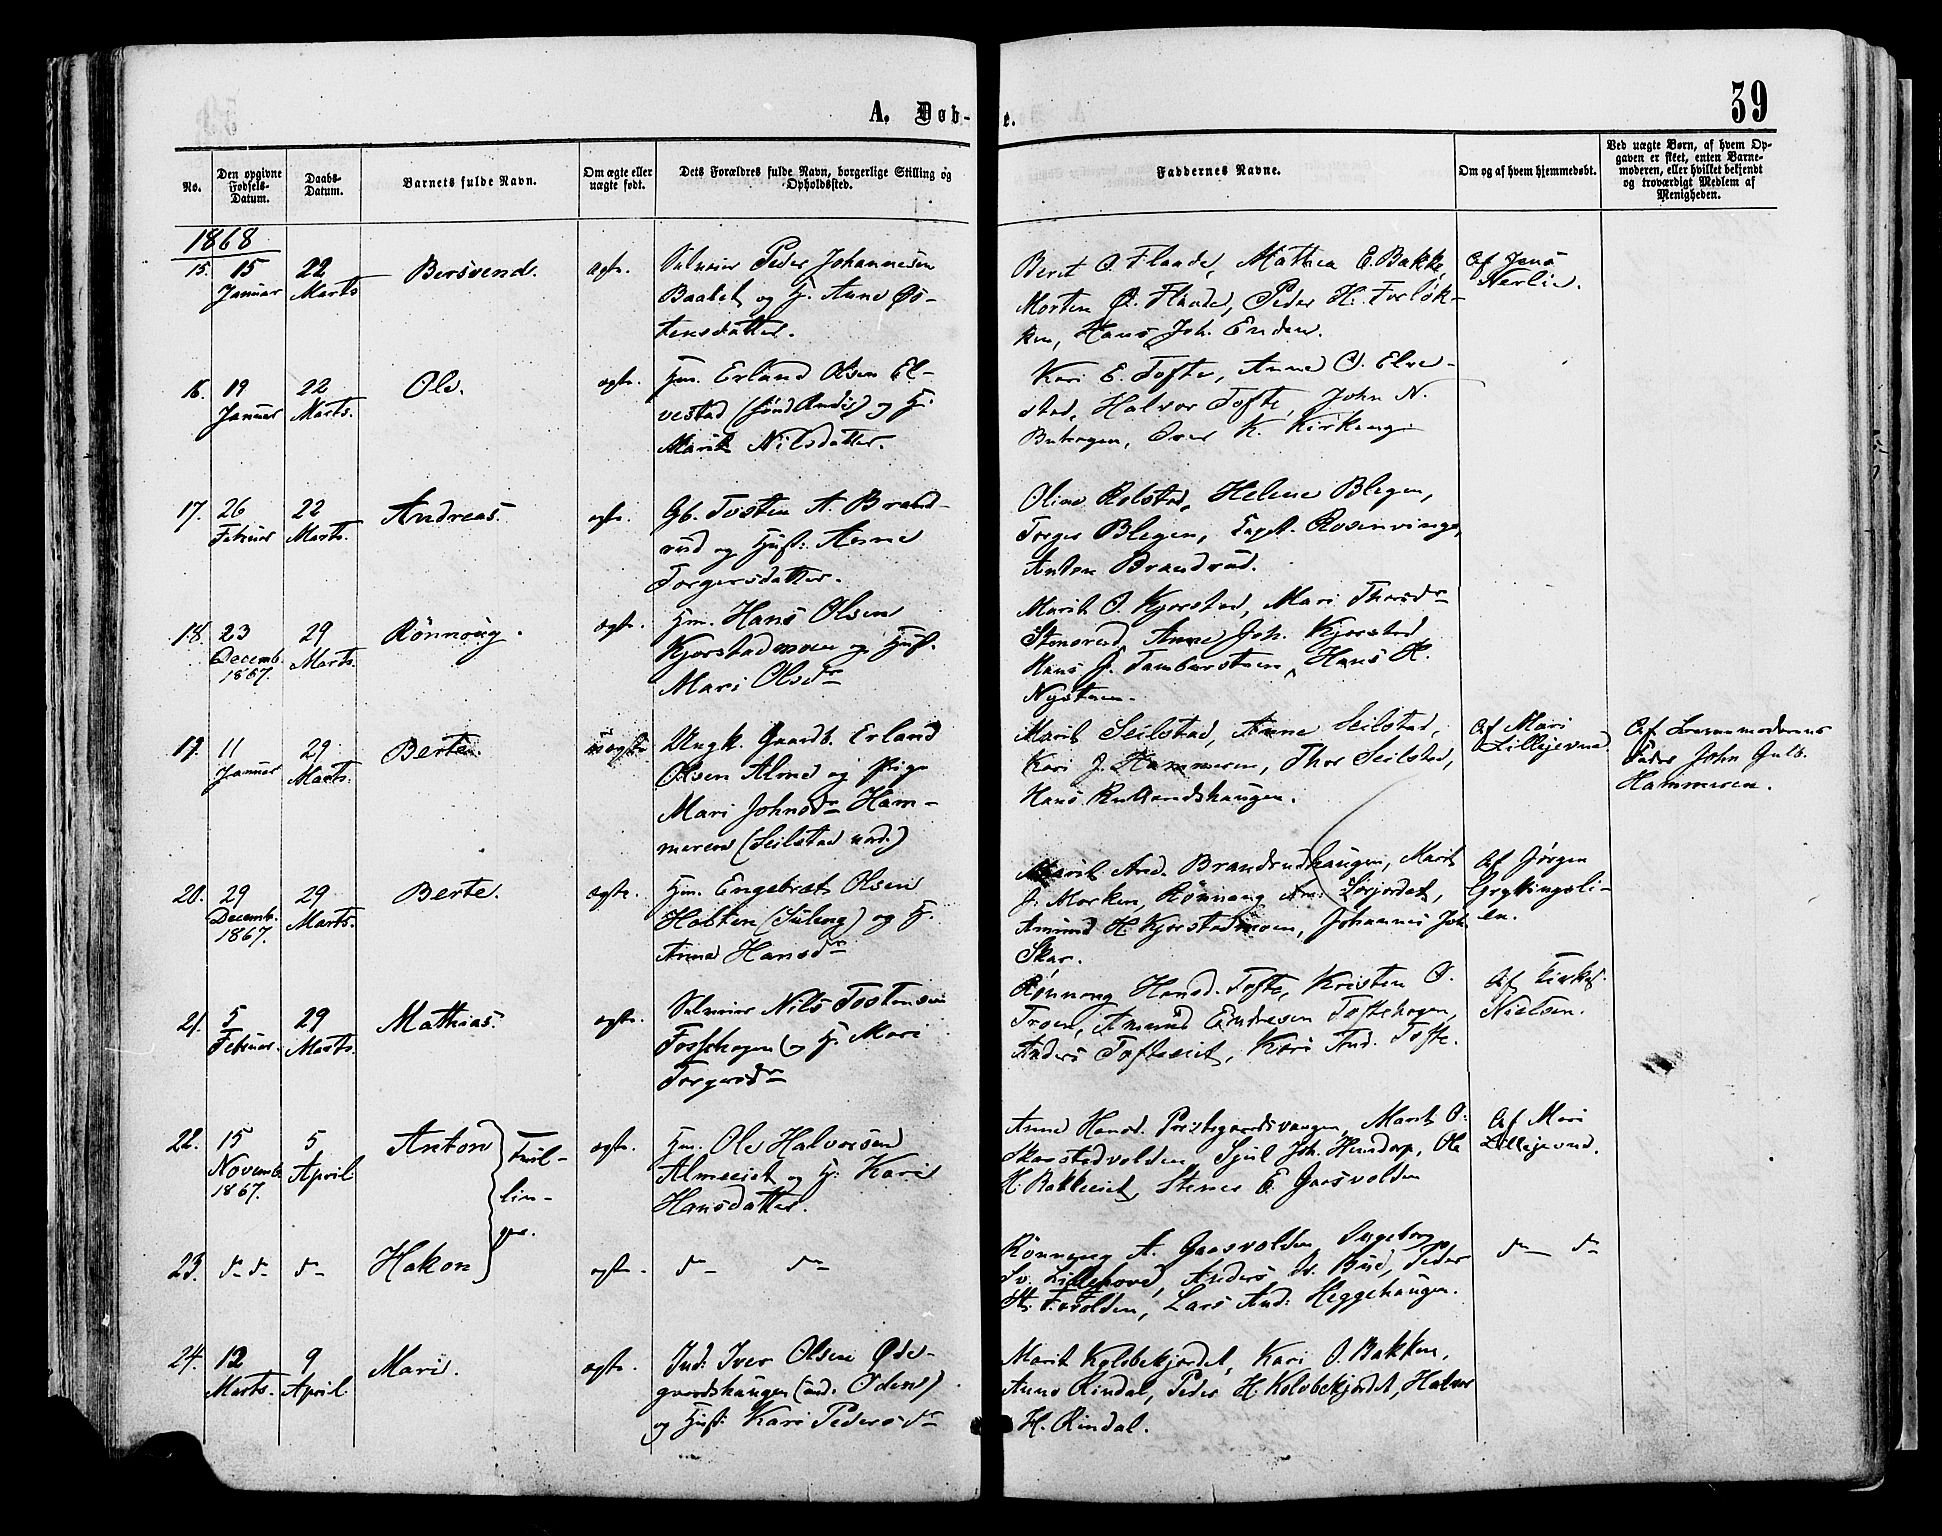 39
A. Døb-
e.
No.
Den opgivne Fødsels-Datum.
Daabs-Datum.
Barnets fulde Navn.
Om ægte eller uægte født.
Dets Forældres fulde Navn, borgerlige Stilling og Opholdssted.
Faddernes Navne.
Om og af hvem hjemmedøbt.
Ved uægte Børn, af hvem Op-
gaven er skeet, enten Barne-
moderen, eller hvilket bekjendt
og troværdigt Medlem af
Menigheden.
1868
15. 15 Januar
22 Marts
Bersvend.
ægte.
Selveier Peder Johannesen
Baatet og H. Anne Øs-
tensdatter.
Berit O. Flaade, Mathea E. Bakke,
Morten Ø. Flaade, Peder H. Forløk-
ken, Hans Joh. Enden.
Af Jens
Nerlie.
16. 19 Januar
22 Marts.
Ole.
ægte.
Hm. Erland Olsen El-
vestad (Sønd Amdis) og H.
Marit Nilsdatter.
Kari E. Tofte, Anne O. Elve-
stad, Halvor Tofte, John N.
K. Kirkeng.
17. 26 Februar
22 Marts.
Andreas.
ægte.
Gb. Tosten A. Brand-
rud og Hust: Anne
Torgersdatter.
Oline Rolstad, Helene Blegen,
Torger Blegen, Capt. Rosenvinge,
Anton Brandrud.
18. 23 Decemb. 1867.
29 Marts.
Rönnoug.
ægte.
Hm. Hans Olsen
Kjorstadmoen og Hust.
Mari Olsdr
Marit O. Kjorstad, Mari Thorsdr
Stenerud, Anne Joh. Kjorstad
Hans J. Tamburstuen, Hans H.
Nystuen.
19. 11 Januar
29 Marts.
Berte.
uægte
Ungk. Gaardb. Erland
Olsen Alme og Pige
Mari Johnsdr Ham-
meren (Seilstad und.)
Marit Seilstad, Anne Seilstad,
Kari J. Hammeren, Thor Seilstad,
Hans Rullandshaugen.
Af Mari
Lillejevne.
Af Barnemoderens
Fader John Gulb.
Hammeren.
20. 29 Decemb. 1867.
29 Marts.
Berte.
ægte.
Hm. Engebret Olsen
Holsten (Suleng) og H.
Anne Hansdr
Marit And. Brandrudhaugen, Marit
J. Morken, Rönnaug Am. Lørjordet,
Amund H. Kjorstadmoen, Johannes Joh.
Skar.
Af Jørgen
Gryttingsli-
en.
21. 5 Februar.
29 Marts.
Mathias.
ægte.
Selveier Nils Tostensen
Fosshagen og H. Mari
Torgersdr
Rønnoug Hansd. Tofte, Kristen O.
Troen, Amund Endresen Toftehagen,
Anders Tofteeiet, Kari And. Tofte.
Af Kirkes.
Nielsen.
22. 15 Novemb. 1867.
5 April
Anton
Tvil-
lin-
ger.
ægte.
Hm. Ole Halvorsen
Almeeiet og H: Kari
Hansdatter.
Anne Hansd. Prestegaardsvangen, Marit O.
Skarstadvolden, Sjul Joh. Hundorp, Ole
H. Bakkeeiet, Stener E. Gaasvolden
Af Mari
Lillejevne.
23. do do
do
Hakon
ægte.
do do
Rönnaug A. Gaasvolden, Ingeborg
Sv. Lillehove, Anders Sv. Bue, Peder
St. Fosvolden, Lars And. Heggehaugen.
do do
24. 12 Marts.
9 April
Mari.
ægte.
Ind. Iver Olsen Øde-
gaardshaugen (und. Odens)
og Hust: Kari Pedersdr
Marit Kolobekjordet, Kari O. Bakken,
Anne Rindal, Peder H. Kolobekjordet, Halvor
H. Rindal.